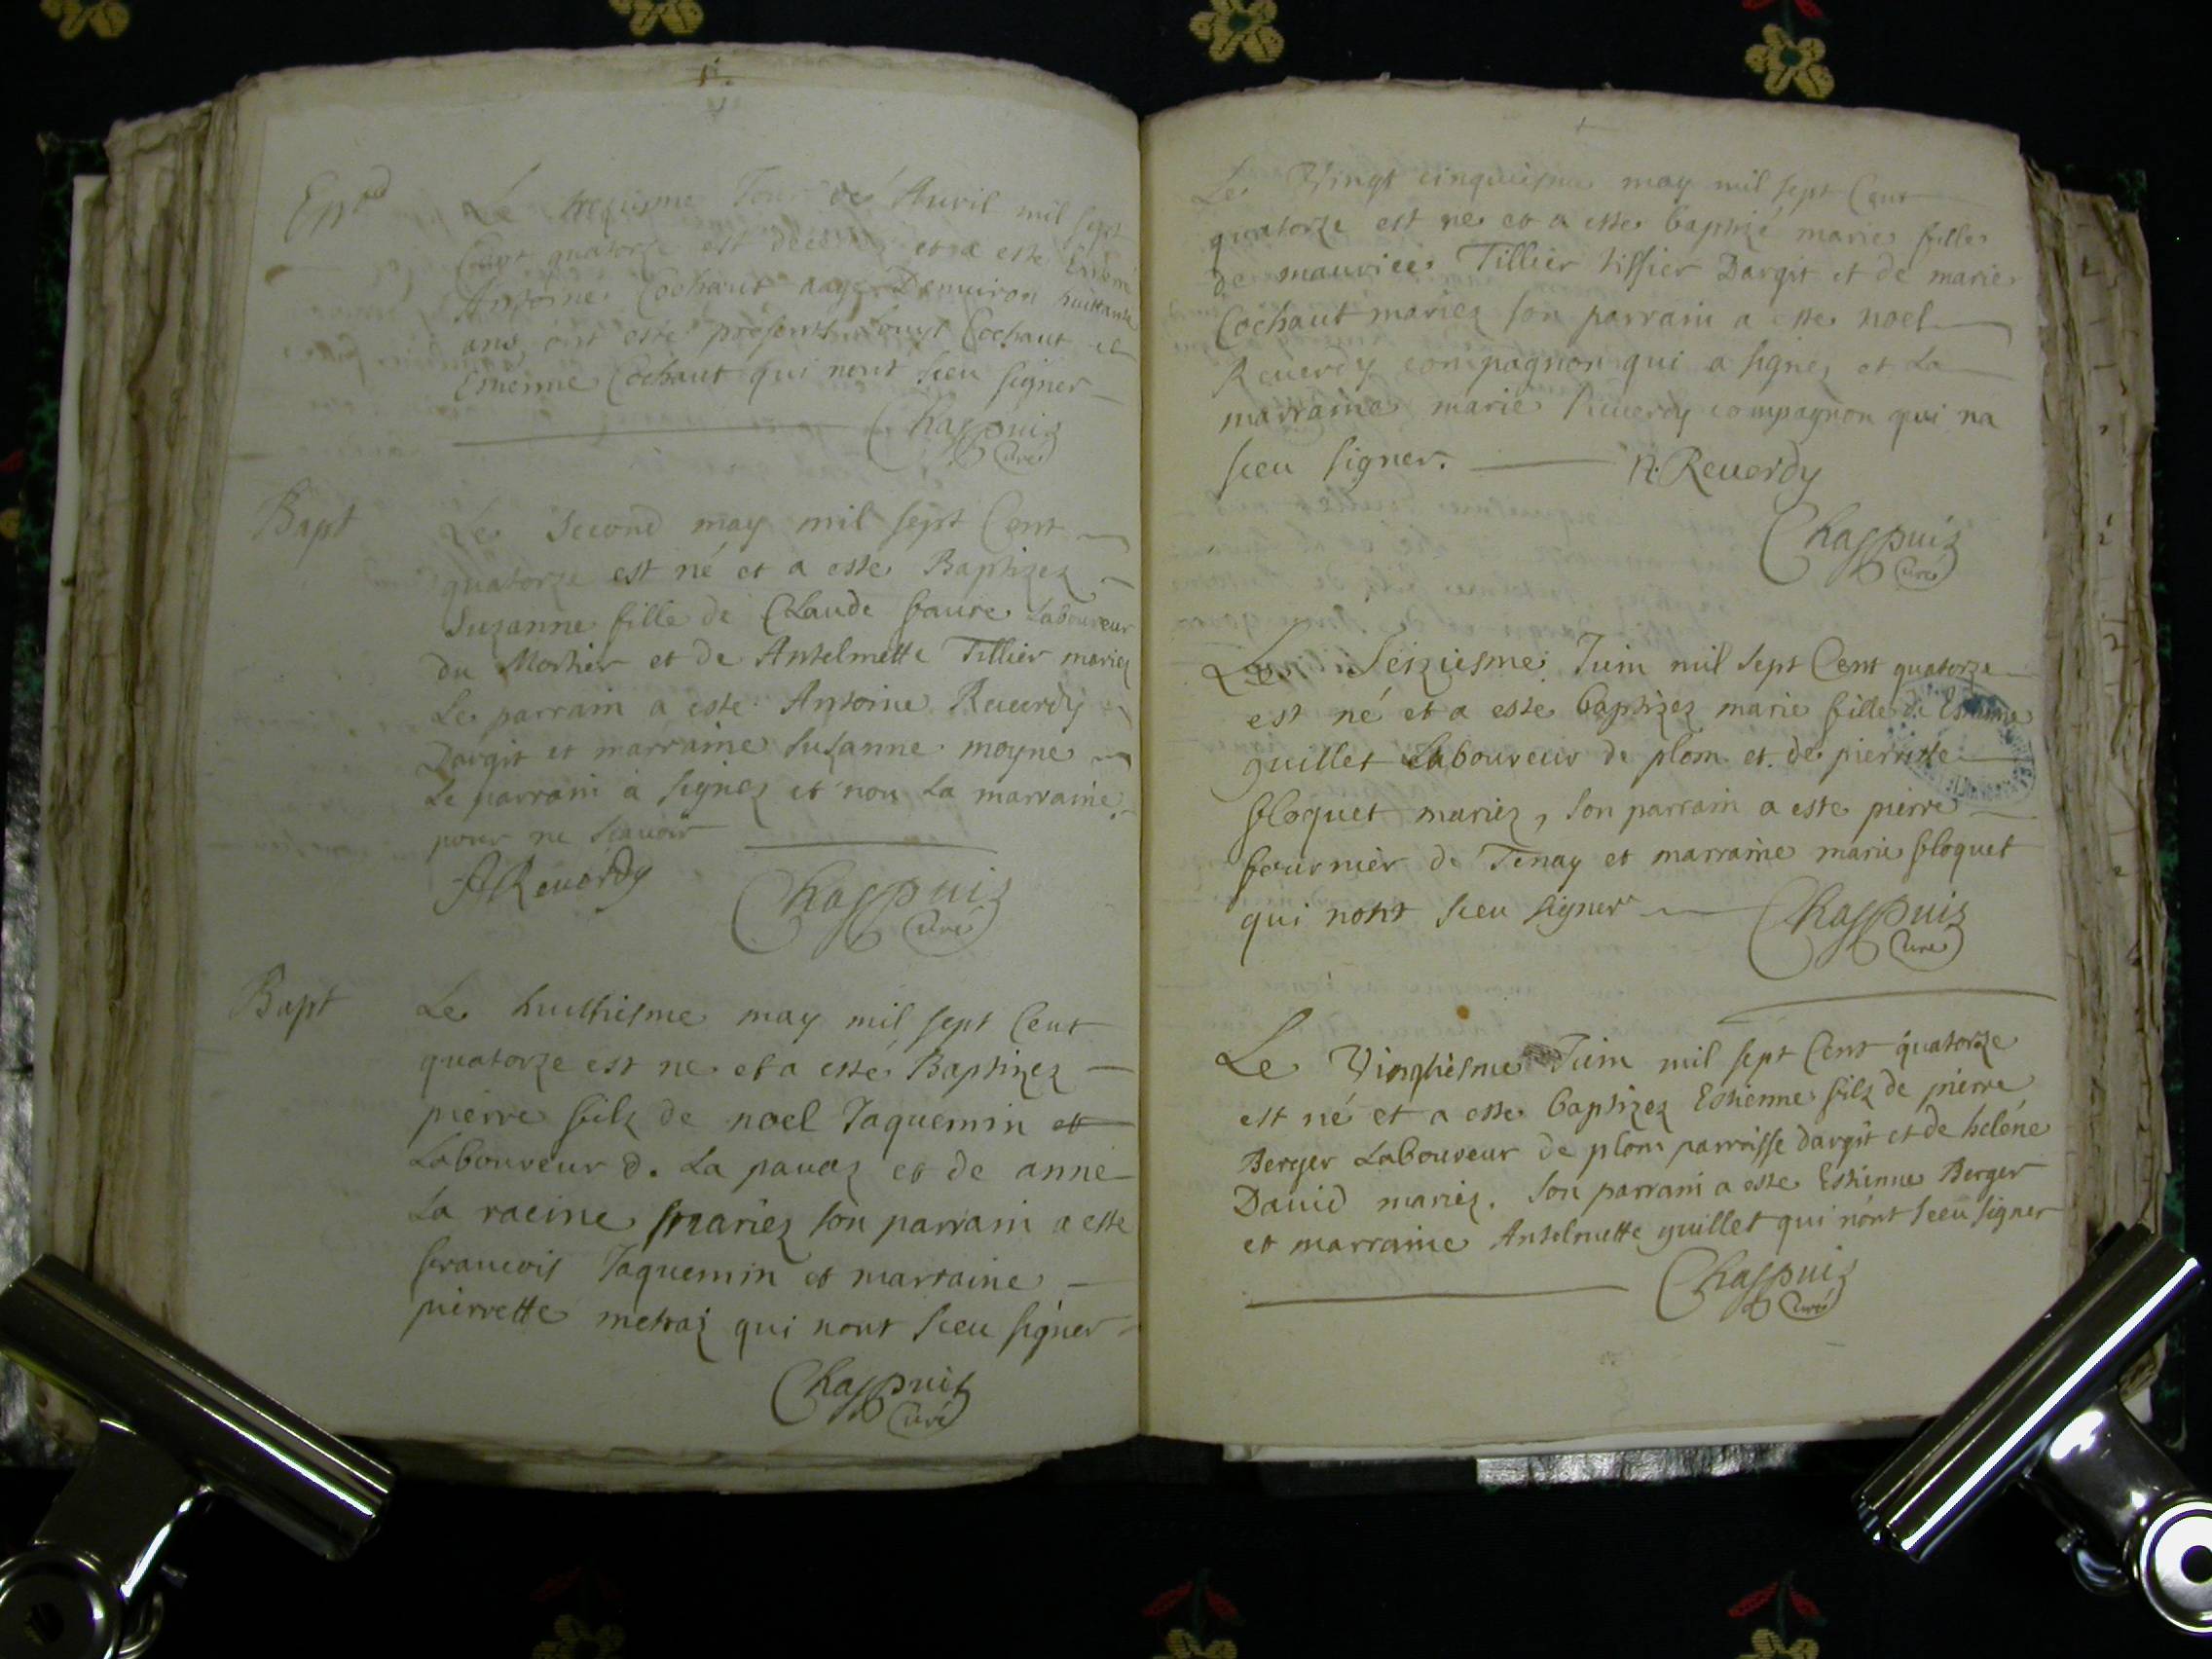 Le treziesme Jour de Auril mil sept
Cent quatorze est decedé et a esté Enterré
Antoine Cochaut aagé Denuiron huittante
ans, ont esté présents Louys Cochaut et
Estienne Cochaut qui nont sceu signer
Chappuis
Curé
Bapt
Le Second may mil sept Cent
quatorze est né et a esté Baptizez
Suzanne fille de Claude faure Laboureur
du Mortier et de Antelmette Tillier mariez
Le parrain a esté Antoine Reuerdy
Dargit et marraine Susanne moyne
Le parrain a signez et non La marraine
pour ne scauoir
A Reuerdy
Chappuis
Curé
Bapt
Le huittiesme may mil sept Cent
quatorze est ne et a esté Baptizez
pierre filz de noel Jaquemin et
Laboureur d. La pauaz et de anne
La racine mariez son parrain a esté
francois Jaquemin et marraine
pierrette metraz qui nont sceu signer
Chappuis
Curé
Le Vingt cinquiesme may mil sept Cent
quatorze est ne et a esté baptizé marie fille
de maurice Tillier tissier Dargit et de marie
Cochaut mariez son parrain a esté noel
Reuerdy compagnon qui a signez et La
marraine marie Reuerdy compagnon qui na
sceu signer. N. Reuerdy
Chappuis
Curé
Le Seiziesme Juin mil sept Cent quatorze
est né et a esté baptizez marie fille de Estienne
guillet Laboureur de plom et de pierrette
floquet mariez, son parrain a esté pierre
fournier de Tenay et marraine marie floquet
qui nont sceu signer
Chappuis
Curé
Le Vingtiesme Juin mil sept Cent quatorze
est né et a esté baptizez Estienne filz de pierre
Berger Laboureur de plom parroisse dargit et de heléne
Dauid mariez. son parrain a esté Estienne Berger
et marraine Antelmette guillet qui nont sceu signer
Chappuis
Curé